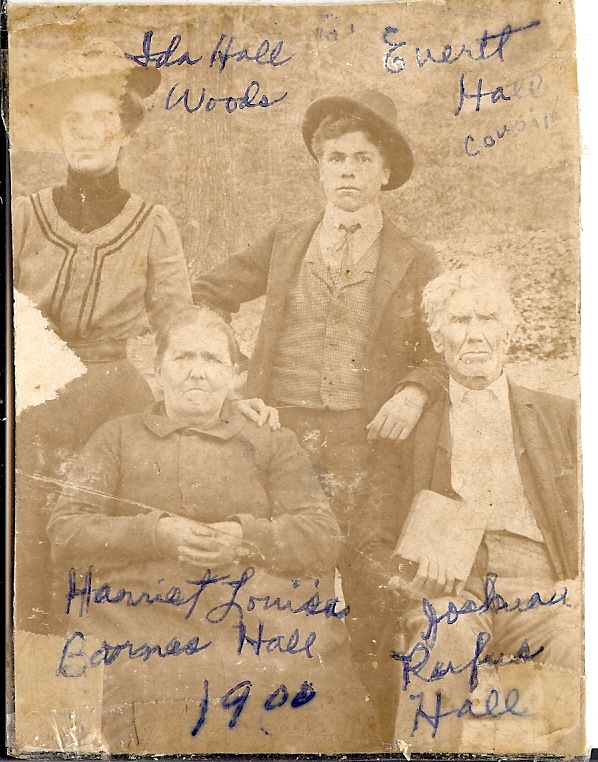 Ida Hall
Woods
Evertt
Hall
Cousin
Harriet Louisa
Barnes Hall
1900
Joshua
Rufus
Hall